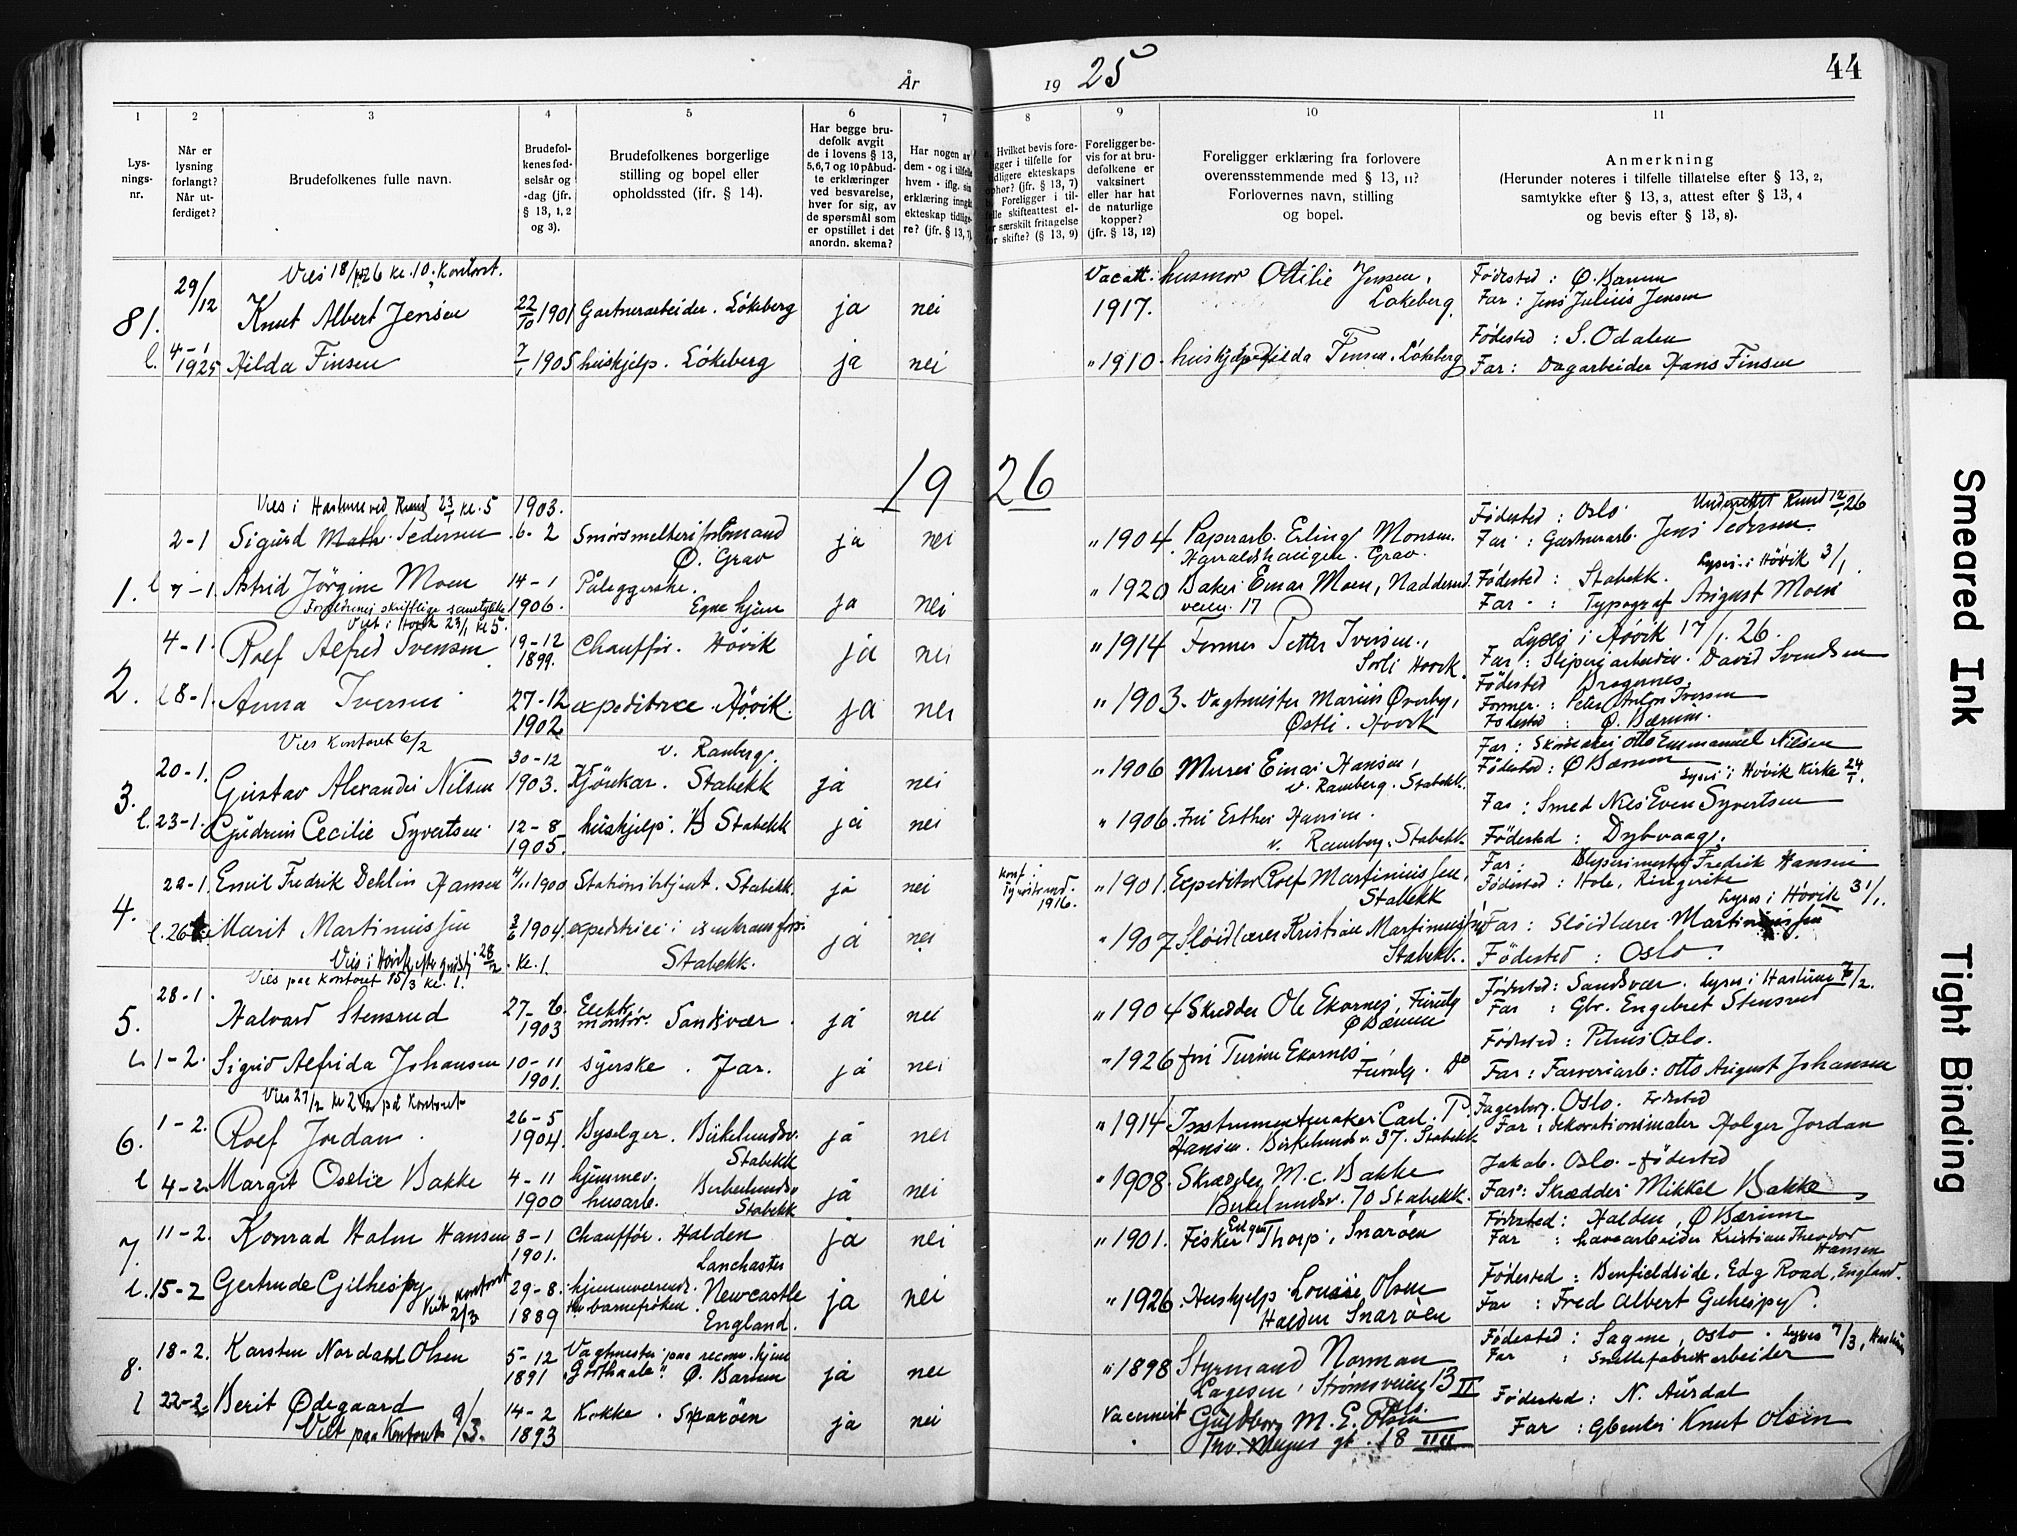 År 19 25
44
1
2
3
4
5
6
7
8
9
10
11
Lysnings-nr.
Når er lysning forlangt? Når utferdiget?
Brudefolkenes fulle navn.
Brudefolkenes fødselsår og -dag (jfr. § 13, 1, 2 og 3).
Brudefolkenes borgerlige stilling og bopel eller opholdssted (jfr. § 14).
Har begge brudefolk avgit de i lovens § 13, 5, 6, 7 og 10 påbudte erklæringer ved besvarelse, hver for sig, av de spørsmål som er opstillet i det anordn. skema?
Har nogen av dem - og i tilfelle hvem - iflg. sin erklæring inngåt ekteskap tidligere? (jfr. § 13, 7)
Hvilket bevis foreligger i tilfelle for tidligere ekteskaps ophør? (jfr. § 13, 7) Foreligger i tilfelle skifteattest eller særskilt fritagelse for skifte? (§ 13, 9)
Foreligger bevis for at brudefolkene er vaksinert eller har hat de naturlige kopper? (jfr. § 13, 12)
Foreligger erklæring fra forlovere overensstemmende med § 13, 11? Forlovernes navn, stilling og bopel.
Anmerkning (Herunder noteres i tilfelle tillatelse efter § 13, 2, samtykke efter § 13, 3, attest efter § 13, 4 og bevis efter § 13, 8).
Vies 18/ 26 kl. 10. Kontoret.
81. 29/12 Knut Albert Jensen 22/10 1901 Gartnerarbeider. Lökeberg ja nei Vacatt. 1917. husmor Otilie Jensen, Lökeberg. Födested : Ø. Bærum Far : Jens Julius Jensen
l. 4-1 1925 Hilda Finsen 7/1 1905 huskjelp. Lökeberg ja nei " 1910. huskjelp Hilda Finsen. Lökeberg Födested : S. Odalen Far : Dagarbeider Hans Finsen
19 26
Vies i Haslum ved Rund 23/1 kl. 5
2-1 Sigurd Math. Pedersen 1903. 6-2 Smörsmelteriformand Ø. Grav ja nei " 1904. Paperarb. Erling Monsen. Haraldshaugen. Grav. Födested : Oslo. Underrettet Rund 12/1 26 Far : Gartnerarb. Jens Pedersen.
1. l 7-1. Astrid Jörgine Moen 14-1 1906. Påleggerske. Egne hjem ja nei " 1920 Baker Einar Moen, Nadderud veien. 17 Födested : Stabekk. Lyses i Hövik 3/1. Far : Typograf August Moen
Foreldrenes skriftlige samtykke
Viet i Hövik 23/1 kl 5.
2. 4-1. Rolf Alfred Svensen 19-12 1899. Chaufför. Hövik ja nei " 1914 Former Petter Iversen, Sorli Hövik. Lyses i Hövik 17/1. 26. Far : Sliperyarbeider. David Svendsen Födested Dragernes.
l 8-1. Anna Iversen 27-12 1902 expeditrice. Hövik. ja nei " 1903. Vagtmester Marius Øverby, Østli. Hövik Former. : Peter Anton Iversen Födested : Ø. Bærum.
Vies Kontoret 6/2
3. 20-1. Gustav Alexander Nilsen 30-12 1903. Kjörekar. v. Ramberg. Stabekk ja nei " 1906 Murer Einar Hansen, v. Ramberg. Stabekk. Far : Skomaker Otto Emmanuel Nilsen Födested : Ø Bærum Lyses i Hövik Kirke 24/1.
l. 23-1. Gudrun Cecilie Syvertsen. 12-8 1905. huskjelp. Stabekk ja nei " 1906. Fru Esther Hansen. v. Ramberg. Stabekk. Far : Smed Nils Even Syvertsen Födested : Dybvaag.
4. 22-1. Emil Fredrik Dehlin Hansen 4/11 1900 Stationsbetjent. Stabekk. ja nei 1916. " 1901. Expeditör Rolf Martiniussen, Stabekk Far : Sliperimester Fredrik Hansen Födested : Hole, Ringerike Lyses i Hövik 31/1.
l. 26 Marit Martiniussen 3/6 1904. expeditrice i isenkramforr. Stabekk. ja nei " 1907 Slöidlærer Kristian Martiniussen Stabekk. Far : Slöidlærer Martiniussen Födested : Oslo.
Vies i Hövik 28/2. kl. 1.
Vies paa Kontoret 15/3 kl. 1.
5. 28-1. Halvard Stensrud 27-6. 1903 Elekk montör. Sandsvær. ja nei " 1904 Skredder Ole Ekornes. Furulg Ø Bærum Födested : Sandsvær. Lyses i Haslum 7/2. Far : Gbr. Engebret Stensrud
l 1-2. Sigrid Alfrida Johansen 10-11 1901. syerske. Jar. ja nei " 1926 fru Turine Ekornes Furulg. Do Födested : Petrus Oslo. Far : Farveriarb : Otto August Johansen
Vies 27/2 kl 2 1/2 på Kontoret
6. 1-2. Rolf Jordan. 26-5 1904. Byselger. Birkelundsv. Stabekk ja nei " 1914 Instrumentmaker Carl. P. Hansen. Birkelundsv. 37. Stabekk Fagerborg. Oslo. Födested Far : dekorationsmaler Holger Jordan
l 4-2. Margit Oselie Bakke 4-11 1900 hjemmev. husarb. Birkelundsv Stabekk ja nei " 1908. Skrædder M. C. Bakke Birkelundsv. 70 Stabekk. Jakob. Oslo. - födested Far : Skrædder Mikkel Bakke
7. 11-2. Konrad Holm Hansen 3-1 1901. Chaufför. Halden ja nei " 1901. Fisker Edgen Thorp, Snaröen Födested : Halden, Ø Bærum Far : havearbeider Kristian Theodor Hansen
l. 15-2 Gertrude Gilhespy 29-8. 1889 hjemmeværende. barnefröken. Lanchaster Newcastle England. ja nei " 1926. Huskjelp Louise Olsen Halden Snaröen Födested : Benfieldside, Edg Road, England. Far : Fred Albert Gilhespy.
Viet Kontoret 2/3
8. 18-2. Karsten Nordahl Olsen 5-12 1891 Vagtmester paa recone. hjem "Gotthaab" Ø. Bærum ja nei " 1898 Styrmand Norman Lagesen, Strömsveien 13 II Oslo. Födested : Sagene, Oslo. Lyses 7/3, Haslum Far : Snellefabrikarbeider
l 22-2 Berit Ødegaard 14-2 1893 Kokke. Snaröen ja nei Vaccinert Guldborg M. E. Olsen Thv. Meyers gt. 18 IIII Födested : N. Aurdal Far : Gbruker Knut Olsen
Viet paa Kontoret 9/3.
Smeared Ink
Tight Binding